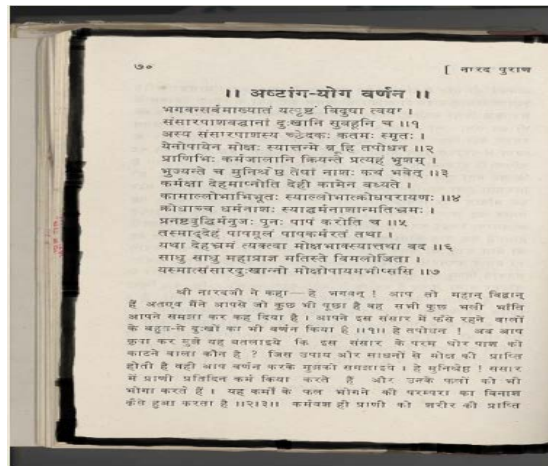 ७० [ नारद पुराण
।। अष्टांग-योग वर्णन ।।
भगवन्सर्वमाख्यातं यत्पृष्टं विदुषा त्वया ।
संसारपाशबद्धानां दुःखानि सुबहूनि च ।।१
अस्य संसारपाशस्य च्छेदकः कतमः स्मृतः ।
येनोपायेन मोक्षः स्यात्तन्मे ब्रूहि तपोधन ।।२
प्राणिभिः कर्मजालानि क्रियन्ते प्रत्यहं भृशम् ।
भुज्यन्ते च मुनिश्रेष्ठ तेषां नाशः कथं भवेत् ।।३
कर्मक्षा देहमाप्नोति देही कामेन बध्यते ।
कामाल्लोभाभिभूतः स्याल्लोभात्क्रोधपरायणः ।।४
क्रोधाच्च धर्मनाशः स्याद्धर्मनाशान्मतिभ्रमः ।
प्रनष्टबुद्धिर्मनुजः पुनः पापं करोति च ।।५
तस्माद्देहं पापमूलं पापकर्मरतं तथा ।
यथा देहभ्रमं त्यक्त्वा मोक्षभाक्स्यात्तथा वद ।।६
साधु साधु महाप्राज्ञ मतिस्ते विमलोर्जिता ।
यस्मात्संसारदुःखान्नो मोक्षोपायमभीप्ससि ।।७
श्री नारदजी ने कहा—हे भगवन् ! आप तो महान् विद्वान्
हैं अतएव मैंने आपसे जो कुछ भी पूछा है वह सभी कुछ भली भाँति
आपने समझा कर कह दिया है । आपने इस संसार में फँसे रहने वालों
के बहुत-से दुःखों का भी वर्णन किया है ।।१।। हे तपोधन ! अब आप
कृपा कर मुझे यह बतलाइये कि इस संसार के परम घोर पाश को
काटने वाला कौन है ? जिस उपाय और साधनों से मोक्ष की प्राप्ति
होती है वही आप वर्णन करके मुझको समझाइये । हे मुनिश्रेष्ठ ! संसार
में प्राणी प्रतिदिन कर्म किया करते हैं और उनके फलों को भी
भोगा करते हैं । यह कर्मों के फल भोगने की परम्परा का विनाश
कैसे हुआ करता है ।।२।३।। कर्मवश ही प्राणी को शरीर की प्राप्ति